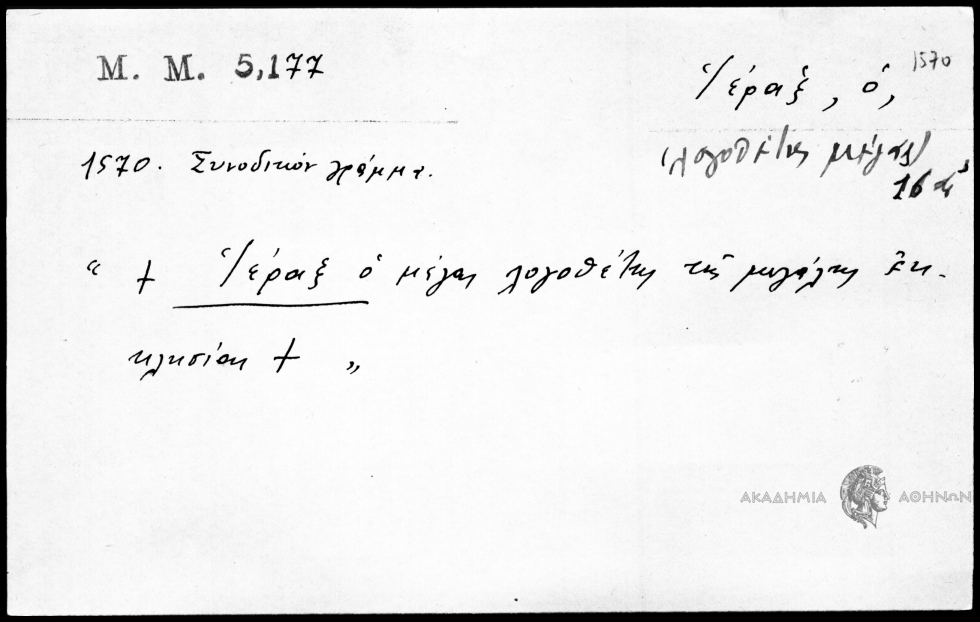 M. M. 5,177
1570
Ἱέραξ, ὁ,
(λογοθέτης μέγας)
16 αἰ
1570. Συνοδικὸν γράμμα.
“ + Ἱέραξ ὁ μέγας λογοθέτης τῆς μεγάλης Ἐκ-
κλησίας + „
ΑΚΑΔΗΜΙΑ ΑΘΗΝΩΝ